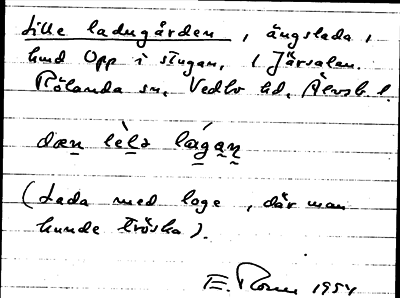 Lille ladugården, ängslada,
hind Opp i stugan, i Järsalen.
Rölanda sn, Vedbo hd, Älvsb. l.
dæn lelə lágan
(Lada med loge, där man
kunde tröska).
E. 1954